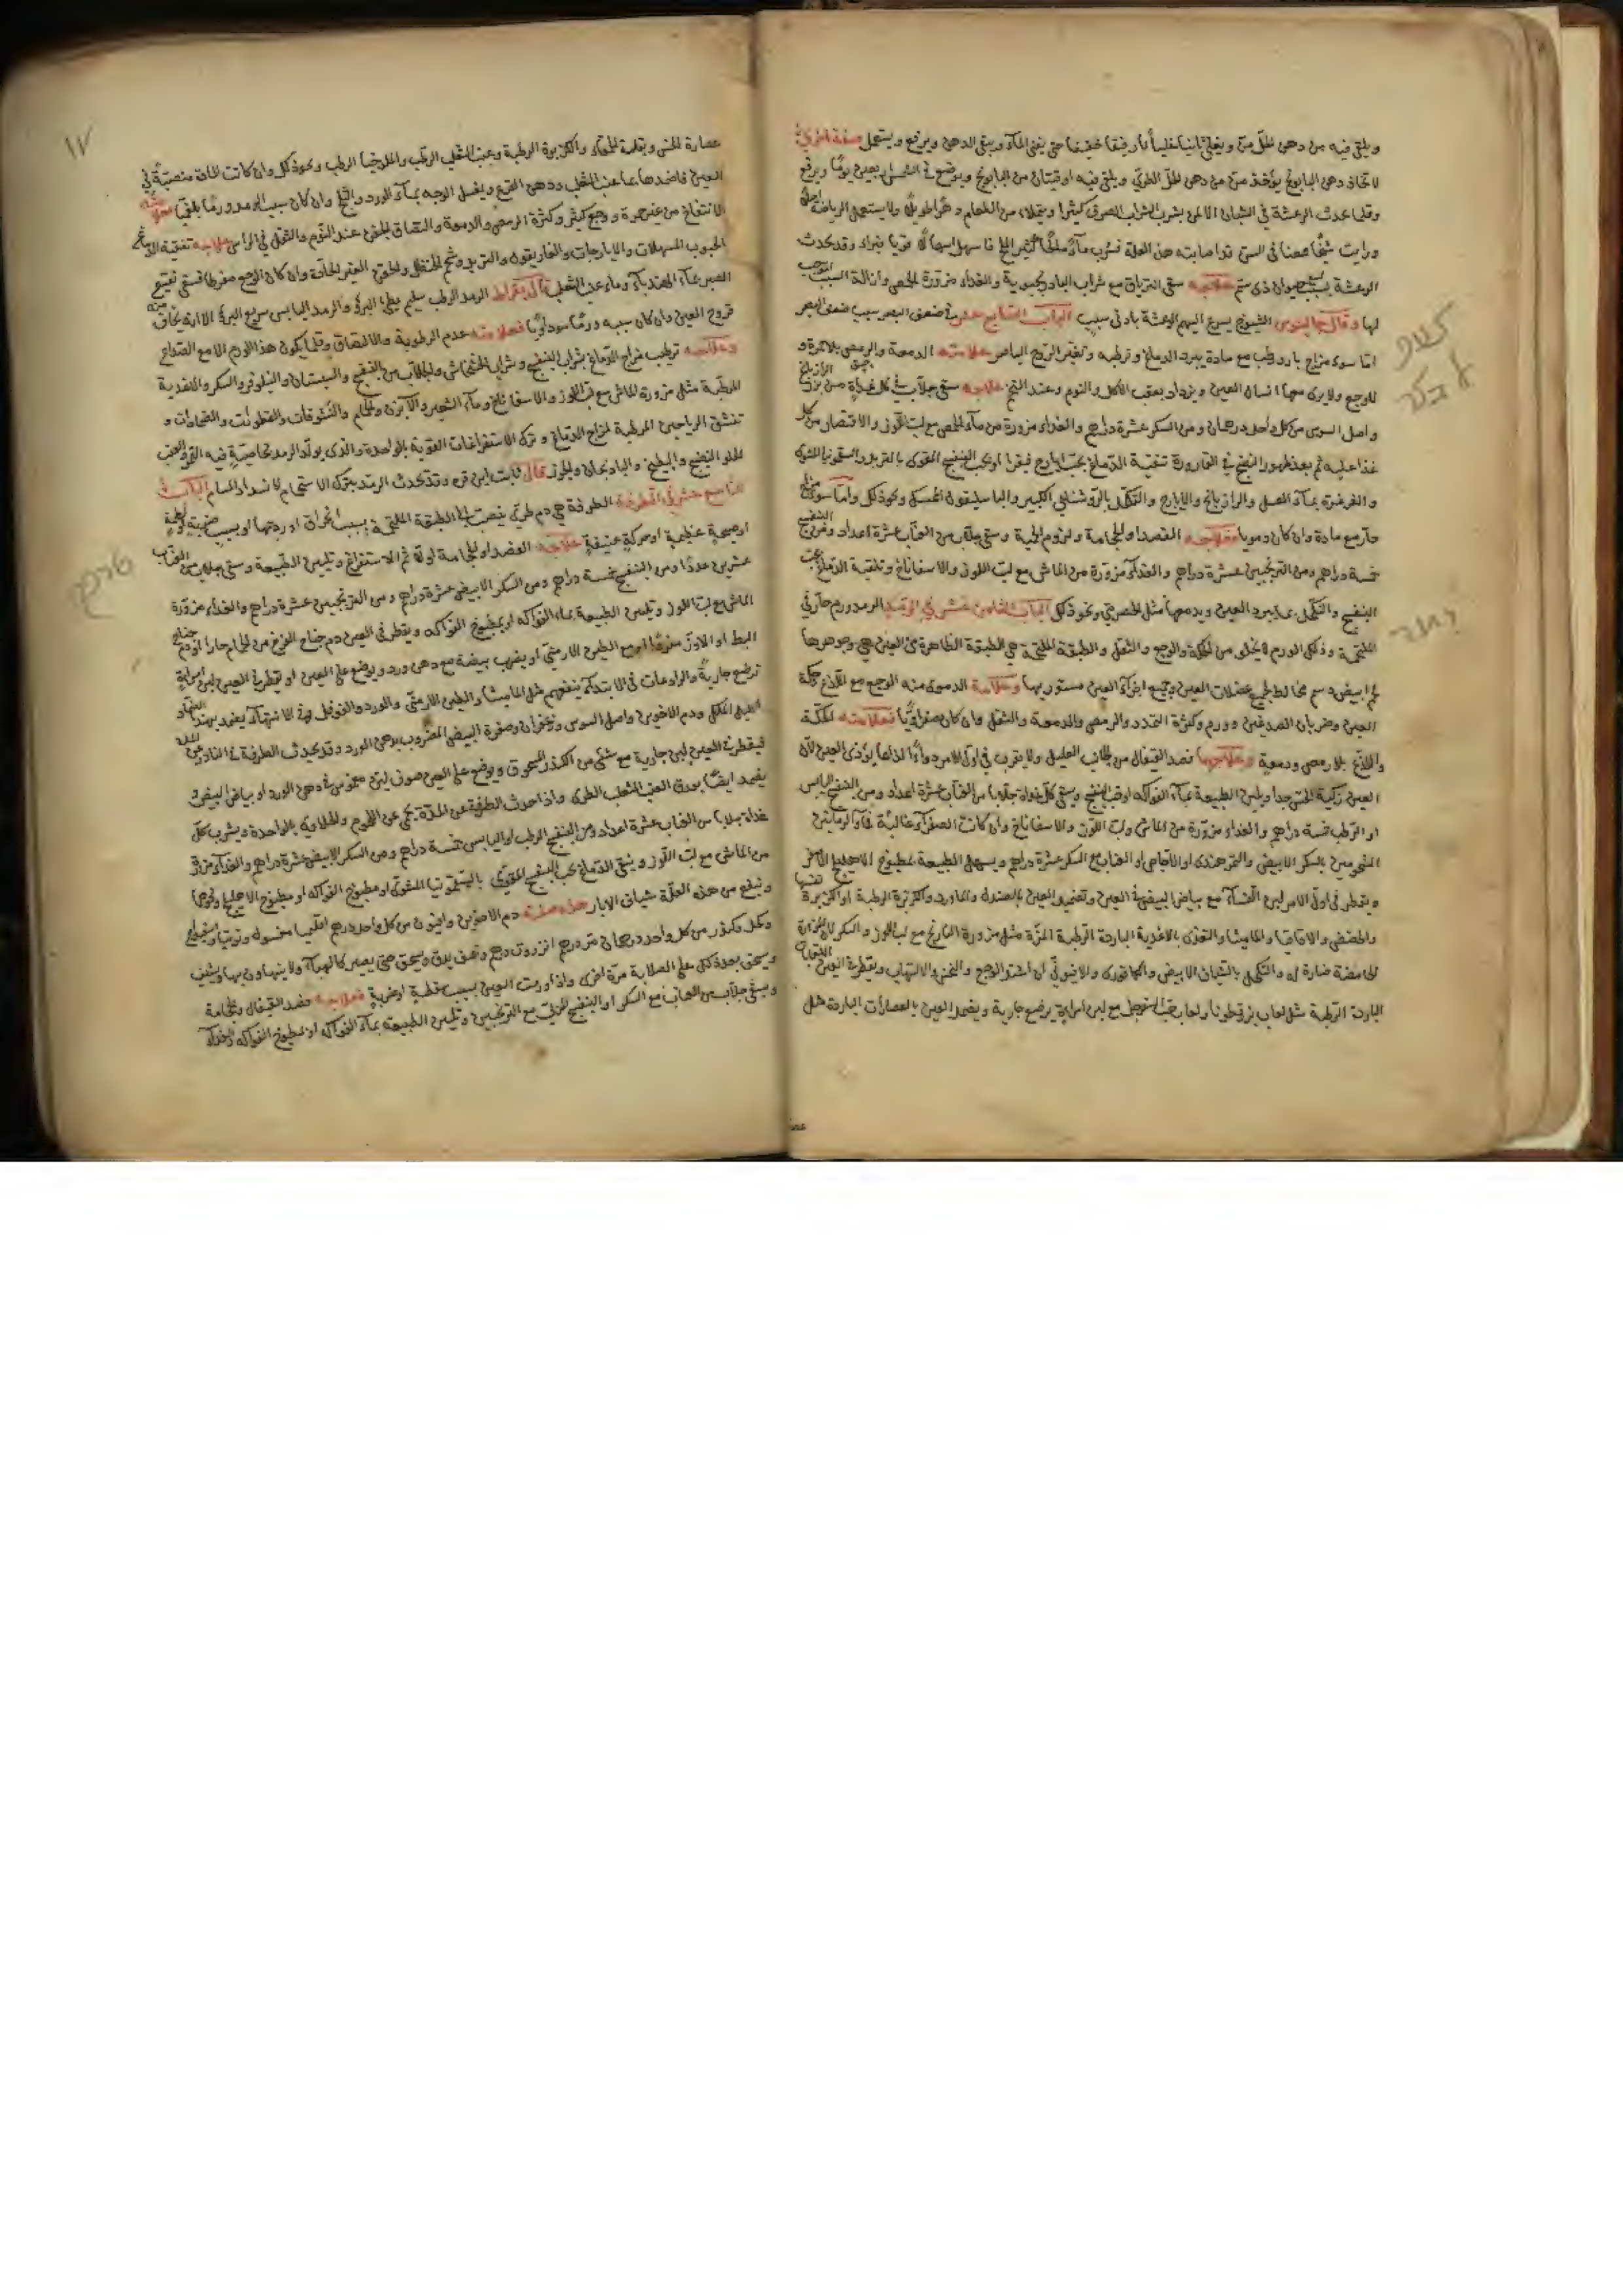 ويلقى فيه من دهن الحلّ منّ ويغلى ثانيا غليانا رفيقا خفيفا حتى يفنى الماء ويبقى الدهن ويرفع ويستعمل صفة اخرى
لاتخاذ دهن البابونج يؤخذ منّ من دهن الحلّ الطريّ ويلقى فيه اوقيتان من البابونج ويوضع في الشمس اربعين يومًا ويرفع
وقلما تحدث الرعشة في الشبان الا لمن يشرب الشراب الصرف كثيرا ويمتلاء من الطعام دهرًا طويلًا ولا يستعمل الرياضة
ورايت شيخًا مصنا في السن قد اصابته هذه العلة فشرب ماءً مالحًا كثير الملح فاسهل اسهالًا قويا فبراء وقد تحدث
الرعشة بسبب حيوان ذى سمّ علاجه سقى الترياق مع شراب البادرنجبوية والغذاء مزورة الحمص وازالة السبب
لها وقال جالينوس الشيوخ يسرع اليهم الرعشة بادنى سبب الباب السابع عشر في ضعف البصر سبب ضعف البصر
اما سوء مزاج بارد رطب مع مادة يبرد الدماغ وترطبه وتغير الروح الباصر علامته الدمعة والرمص بلا حمرة و
لا وجع ولا يرى معها انسان العين ويزداد بعقب الاكل والنوم وعند التخم علاجه سقى جلاب في كل غداة من بزر
واصل السوس من كل واحد درهمان ومن السكر عشرة دراهم والغذاء مزورة من ماء الحمص مع لب اللوز والاقتصار من كل
غذا عليه ثم بعد ظهور النضج في القارورة تنقية الدماغ بحب ايارج فيقرا او بحب البنفسج المقوى بالتربد والسقمونيا المشوى
والغرغرة بماء العسل والرازيانج والايارج والتكحل بالروشنايي الكبير والباسليقون الممسك ونحو ذلك واما سوء مزاج
حار مع مادة وان كان دمويا فعلاجه الفصد او الحجامة ولزوم الحمية وسقى جلاب من العناب عشرة اعداد ومن
خمسة دراهم ومن الترنجبين عشرة دراهم والغذاء مزورة من الماش مع لب اللوز والاسفاناخ وتنقية الدماغ بحب
البنفسج والتكحل بما يبرد العين ويدمعها مثل الحصرمي ونحو ذلك الباب الثامن عشر في الرمد الرمد ورم حار في
الملتحمة وذلك الورم لا يخلو من الحكة والوجع والثقل والطبقة الملتحمة هي الطبقة الظاهرة من العين وجوهرها
لحم ابيض دسم مخالط لجميع عضلات العين وجميع اجزاء العين مستور بها وعلامة الدموى منه الوجع مع اللذع وحكة
العين وضربان الصدغين وورم وكثرة التمدد والرمص والدمعة والثقل وان كان صفراويًا فعلامته الحكة
واللذع بلا رمص ودمعة وعلاجهما فصد القيفال من جانب العليل ولا يقرب في اول الامر دواءً لذاعا يؤذى العين لان
العين زكية الحس جدا وتليين الطبيعة بماء الفواكه او حب البنفسج وسقى كل غداة جلابا من العناب عشرة اعداد ومن البنفسج اليابس
او الرطب خمسة دراهم والغذاء مزورة من الماش ولب اللوز والاسفاناخ وان كانت الصفراء غالبة فماء الرمانين
المنحوسين بالسكر الابيض والتمر هندى او الاجاص او العناب مع السكر عشرة دراهم ويسهل الطبيعة بمطبوخ الاهليلج الاصفر
ويقطر في اول الامر لبن النساء مع بياض البيض في العين وتضميد العين بالصندل والماورد والكزبرة الرطبة او الكزبرة
والحضض والاقاقيا والماميثا والتغذى بالاغذية الباردة الرطبة المزة مثل مزورة النارنج مع لب اللوز والسكر لان المزارة
الحامضة ضارة له والتكحل بالشياف الابيض والكافورى والافيوني ان اشتد الوجع والنخز والالتهاب وتقطر في العين
الباردة الرطبة مثل لعاب بزرقطونا ولعاب حب السفرجل مع لبن امراة ترضع جارية ويضمد العين بالعصارات الباردة مثل
كلاو
رمد
١٧
عصارة الخس وبقلة الحمقاء والكزبرة الرطبة وعنب الثعلب الرطب والطرخشقوق الرطب ونحو ذلك وان كانت المادة منصبة في
العين فاضمدها بماء عنب الثعلب ودهن القرع ويغسل الوجه بماء الورد والثلج وان كان سبب الرمد ورمًا بلغميًا
الانتفاخ من غير حمرة ووجع كثير وكثرة الرمص والدمعة والتصاق الجفن عند النوم والثقل في الراس علاجه تنقية الدماغ
الحبوب المسهلات والايارجات والغاريقون والتربد وشحم الحنظل والحقن الغير الحادة وان كان الوجع مفرطا فسقى نقيع
الصبر بماء الهندباء وماء عنب الثعلب قال بقراط الرمد الرطب سليم بطئ البرؤ والرمد اليابس سريع البرؤ الا انه يخاف منه
قروح العين وان كان سببه ورمًا سوداويًا فعلامته عدم الرطوبة والالتصاق وقلما يكون هذا الورم الا مع الصداع
وعلاجه ترطيب مزاج الدماغ بشراب البنفسج وشراب الخشخاش والجلاب من البنفسج والسبستان والنيلوفر والسكر والاغذية
المرطبة مثل مزورة الماش مع لب اللوز والاسفاناخ وماء الشعير والآبزن والحمام والنشوقات والنطولات والضمادات و
تنشق الرياحين المرطبة لمزاج الدماغ وترك الاستفراغات القوية بالواحدة والذى يولد الرمد بخاصية فيه التمر والعنب
الحلو النضيج والبطيخ والباذنجان والجوز قال ثابت ابن قره وقد تحدث الرمد بترك الاستحمام لانسداد المسام الباب
التاسع عشر في الطرفة الطرفة هي دم طرى ينصب الى الطبقة الملتحمة بسبب انخراق اوردتها او بسبب ضربة او لطمة
او صيحة عظيمة او حركة عنيفة علاجه الفصد او الحجامة اولا ثم الاستفراغ وتليين الطبيعة وسقى جلاب من العناب
عشرين عددًا ومن البنفسج خمسة دراهم ومن السكر الابيض عشرة دراهم ومن الترنجبين عشرة دراهم والغذاء مزورة
الماش مع لب اللوز وتليين الطبيعة بماء الفواكه او بمطبوخ الفواكه ويقطر في العين دم جناح الفرخ من الحمام حارا او دم جناح
البط او الاوز مفردًا او مع الطين الارمنى او يضرب بيضة مع دهن ورد ويوضع على العين او يقطر في العين لبن امراة
ترضع جارية والرادعات في الابتداء ينفعهم مثل الماميثا والطين الارمنى والورد والفوفل وفي الانتهاء يضمد بهذا الضماد
اكليل الملك ودم الاخوين واصل السوس وزعفران وصفرة البيض المضروب بدهن الورد وقد تحدث الطرفة في النادر عن
فيقطر في العين لبن جارية مع شئ من الكندر المسحوق ويوضع على العين صوف لين مغموس في دهن الورد او بياض البيض و
يضمد ايضًا بورق العنب الثعلب الطرى واذا حدث الطرفة عن المدّة يحمى عن اللحوم والحلاوة بالواحدة ويشرب كل
غداة جلابا من العناب عشرة اعداد ومن البنفسج الرطب او اليابس خمسة دراهم ومن السكر الابيض عشرة دراهم والغذاء مزورة
من الماش مع لب اللوز وينقى الدماغ بحب البنفسج المقوى بالسقمونيا المشوى او مطبوخ الفواكه او مطبوخ الاهليلج
وينفع من هذه العلة شياف الابار هذه صفته دم الاخوين وافيون من كل واحد درهم اقليميا مغسول وتوتيا
وكحل وكندر من كل واحد درهمان مر درهم انزروت درهم ونصف يدق ويسحق حتى يصير كالهباء ولا يتهاون بها ويشيف
ويسحق بعد ذلك على الصلابة مرة اخرى واذا ورمت العين بسبب لطمة او ضربة فعلاجه فصد القيفال والحجامة
ويسقى جلاب من العناب مع السكر او البنفسج المربى مع الترنجبين وتليين الطبيعة بماء الفواكه او مطبوخ الفواكه